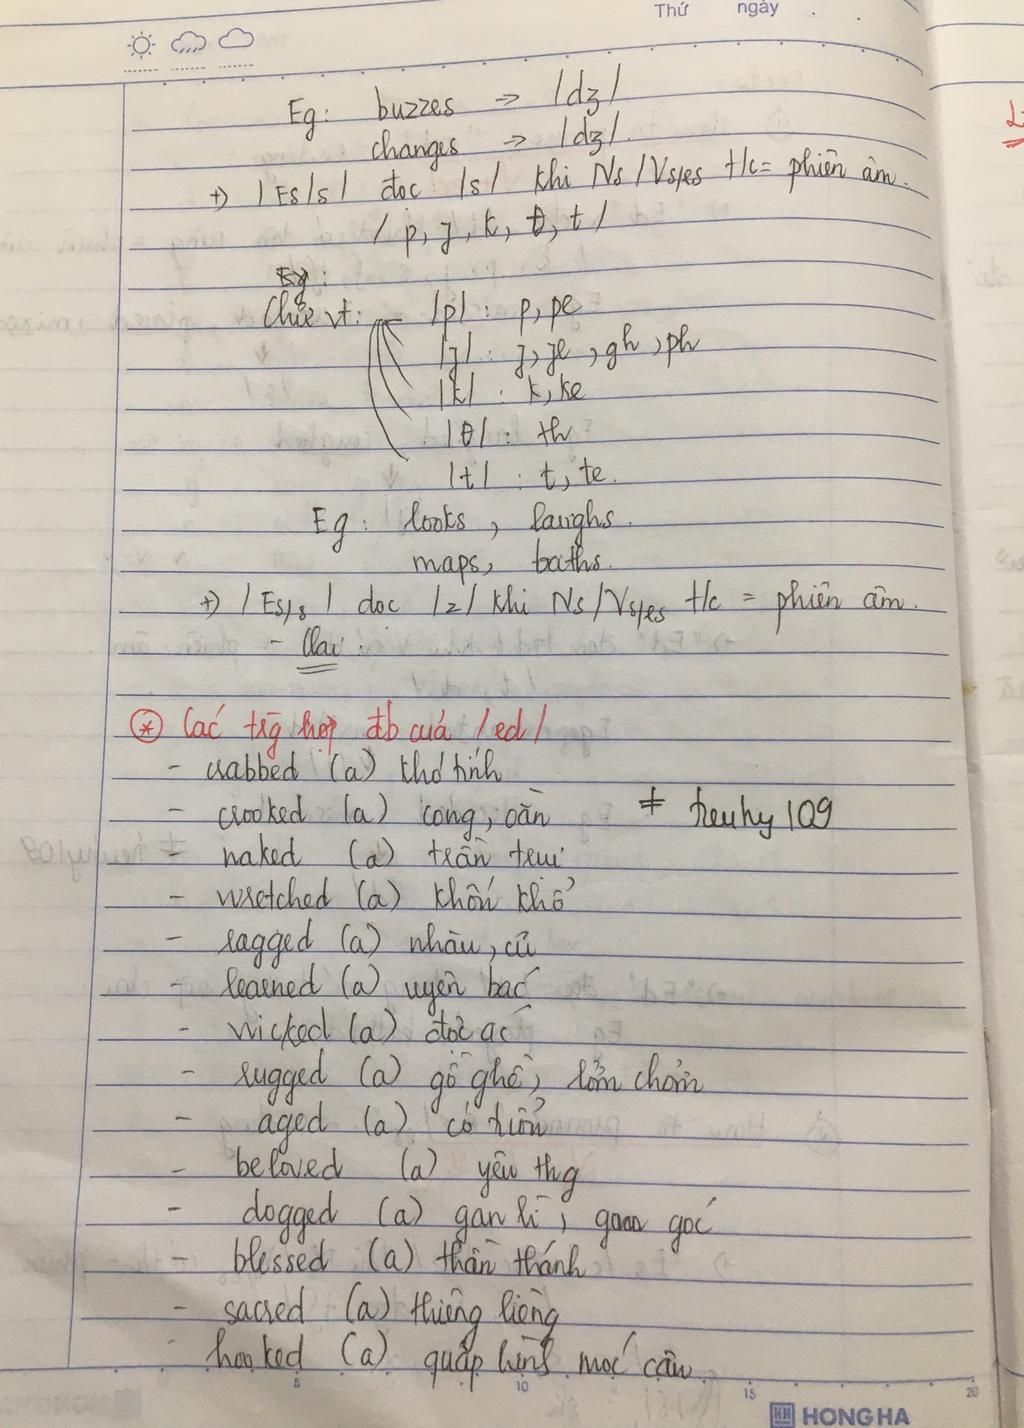 Thứ ngày
Eg: buzzes → /dʒ/
changes → /dʒ/.
+) /Es/s/ đọc /s/ khi Ns/Vs/es t/c = phiên âm.
/p, f, k, θ, t/
Eg:
Chữ vt: /p/ : p, pe
/f/ : f, fe, gh, ph
/k/ : k, ke
/θ/ : th
/t/ : t, te.
Eg: looks, laughs.
maps, baths.
+) /Es/s/ đọc /z/ khi Ns/Vs/es t/c = phiên âm.
- Clại:
* Các trg hợp đb của /ed/
- crabbed (a) khó tính
- crooked (a) cong, oằn ≠ teuhy109
- naked (a) trần trụi
- wretched (a) khốn khổ
- ragged (a) nhàu, cũ
- learned (a) uyên bác
- wicked (a) độc ác
- rugged (a) gồ ghề, lởm chởm
- aged (a) có tuổi
- beloved (a) yêu thg
- dogged (a) gan lì, góc
- blessed (a) thần thánh
- sacred (a) thiêng liêng
- hooked (a) quắp hình móc câu
5 10 15 20
HONG HA